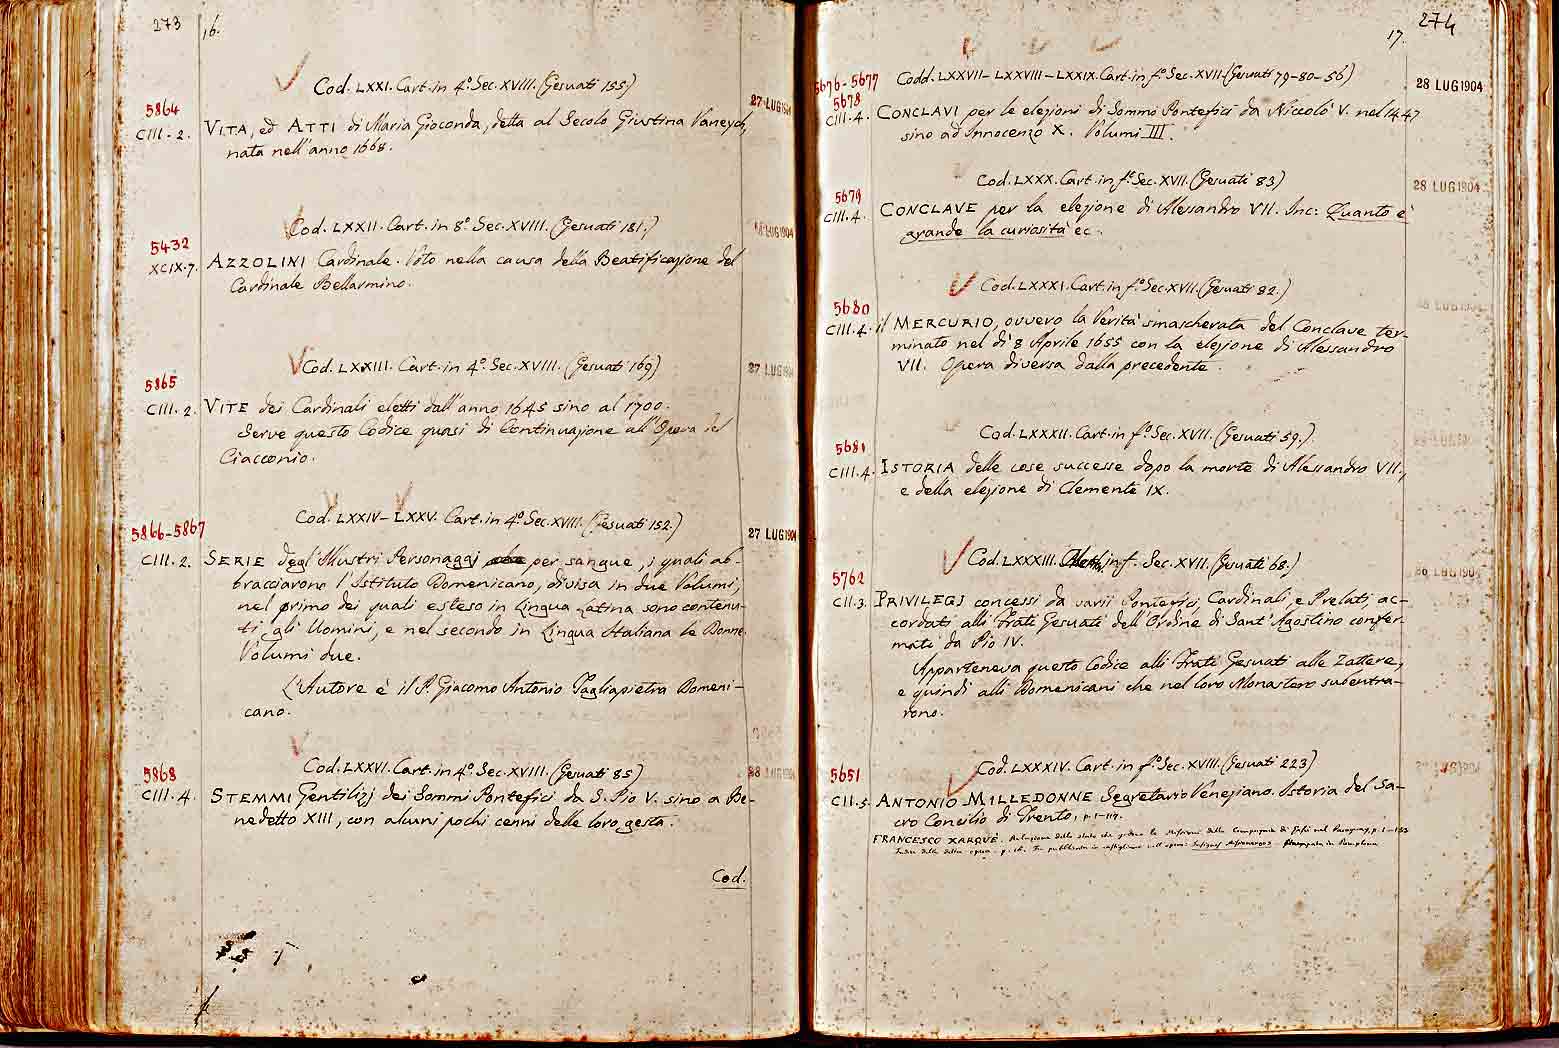 273
16.
Cod. LXXI. Cart. in 4º. Sec. XVIII. (Gesuati 155)
5864
27 LUG 1904
CIII. 2. VITA, ed ATTI di Maria Gioconda, detta al Secolo Giustina Vaneych,
nata nell'anno 1668.
Cod. LXXII. Cart. in 8º. Sec. XVIII. (Gesuati 181.)
5432
LUG 1904
XCIX. 7. AZZOLINI Cardinale. Voto nella causa della Beatificazione del
Cardinale Bellarmino.
Cod. LXXIII. Cart. in 4º. Sec. XVIII. (Gesuati 169)
5865
27 LUG 1904
CIII. 2. VITE dei Cardinali eletti dall'anno 1645 sino al 1700.
Serve questo Codice quasi di Continuazione all'Opera del
Ciacconio.
Cod. LXXIV – LXXV. Cart. in 4º. Sec. XVIII. (Gesuati 152.)
5866-5867
27 LUG 1904
CIII. 2. SERIE degl'Illustri Personaggj per sangue, i quali ab-
bracciarono l'Istituto Domenicano, divisa in due Volumi,
nel primo dei quali esteso in Lingua Latina sono contenu-
ti gli Uomini, e nel secondo in Lingua Italiana le Donne.
Volumi due.
L'Autore è il P. Giacomo Antonio Tagliapietra Domeni-
cano.
Cod. LXXVI. Cart. in 4º. Sec. XVIII. (Gesuati 85)
5868
28 LUG 1904
CIII. 4. STEMMI Gentilizj dei Sommi Pontefici da S. Pio V. sino a Be-
nedetto XIII, con alcuni pochi cenni delle loro gesta.
Cod.
274
17.
Codd. LXXVII – LXXVIII – LXXIX. Cart. in fº. Sec. XVII. (Gesuati 79-80-56)
5676-5677
5678
28 LUG 1904
CIII. 4. CONCLAVI per le elezioni di Sommi Pontefici da Niccolò V. nel 1447
sino ad Innocenzo X. Volumi III.
Cod. LXXX. Cart. in fº. Sec. XVII. (Gesuati 83)
5679
28 LUG 1904
CIII. 4. CONCLAVE per la elezione di Alessandro VII. Inc: Quanto è
grande la curiosità ec.
Cod. LXXXI. Cart. in fº. Sec. XVII. (Gesuati 82.)
5680
28 LUG 1904
CIII. 4. Il MERCURIO, ovvero la Verità smascherata del Conclave ter-
minato nel dì 8 Aprile 1655 con la elezione di Alessandro
VII. Opera diversa dalla precedente.
Cod. LXXXII. Cart. in fº. Sec. XVII. (Gesuati 59.)
5681
CIII. 4. ISTORIA delle cose successe dopo la morte di Alessandro VII.,
e della elezione di Clemente IX.
Cod. LXXXIII. in f. Sec. XVII. (Gesuati 68.)
5762
LUG 1904
CII. 3. PRIVILEGJ concessi da varii Pontefici, Cardinali, e Prelati, ac-
cordati alli Frati Gesuati dell'Ordine di Sant'Agostino confer-
mati da Pio IV.
Apparteneva questo Codice alli Frati Gesuati alle Zattere,
e quindi alli Domenicani che nel loro Monastero subentra-
rono.
Cod. LXXXIV. Cart. in fº. Sec. XVIII. (Gesuati 223)
5651
CII. 5. ANTONIO MILLEDONNE Segretario Veneziano. Istoria del Sa-
cro Concilio di Trento, p. 1-117.
FRANCESCO XARQUE. Relazione dello stato che godeva le Missioni della Compagnia di Gesù nel Paraguay, p. 1-152